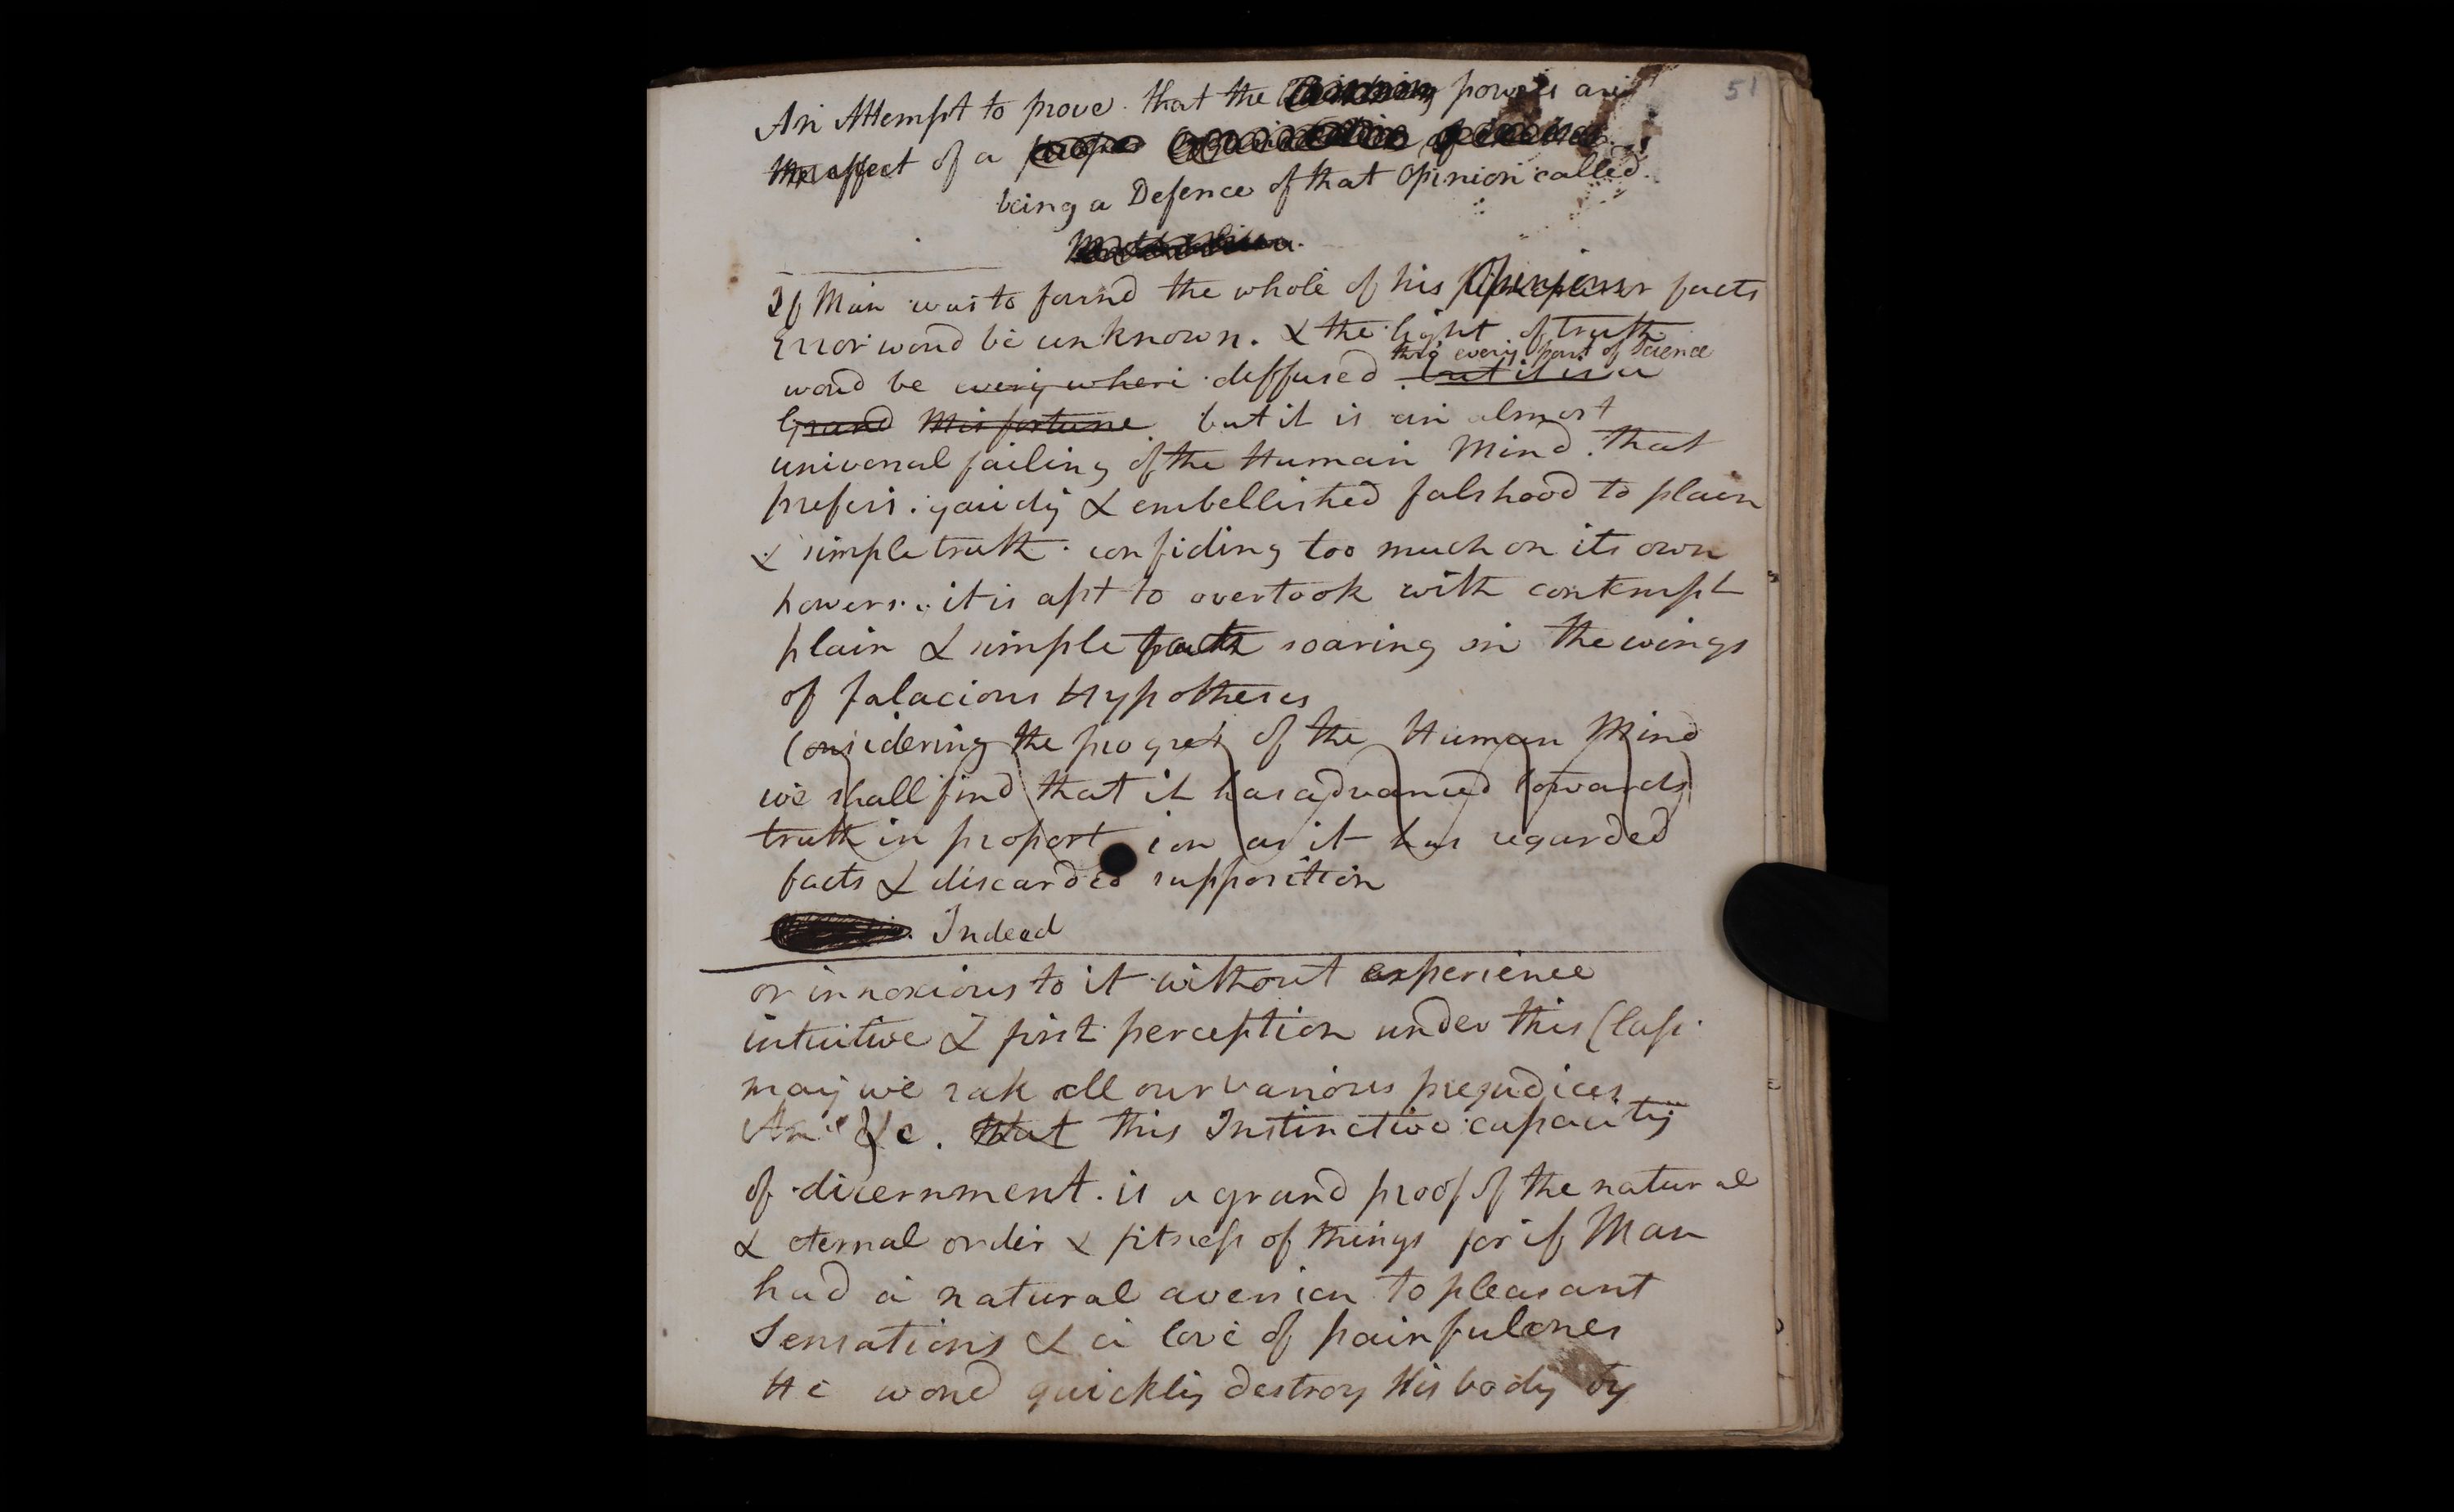 51
An Attempt to prove that the Thinking powers are
the effect of a peculiar Organization of matter
being a Defence of that Opinion called
Materialism.
If Man was to found the whole of his Opinions facts
Error woud be unknown. & the light of truth
thro every part of Science
woud be every where diffused but it is a
Grand Misfortune but it is an almost
universal failing of the Human Mind. that
prefers. gaudy & embellished falshood to plain
& simple truth. confiding too much on its own
powers. it is apt to overlook with contempt
plain & simple facts soaring on the wings
of falacious Hypotheses
Considering the progress of the Human Mind
we shall find that it has advanced towards
truth in proportion as it has regarded
facts & discarded supposition
Indeed
or innoxious to it without experience
intuitive & first perception under this Class.
may we rank all our various prejudices
&c. But this Instinctive capacity
of dicernment. is a grand proof of the natural
& eternal order & fitness of things for if Man
had a natural aversion to pleasant
Sensations & a love of painful ones
He woud quickly destroy His body by